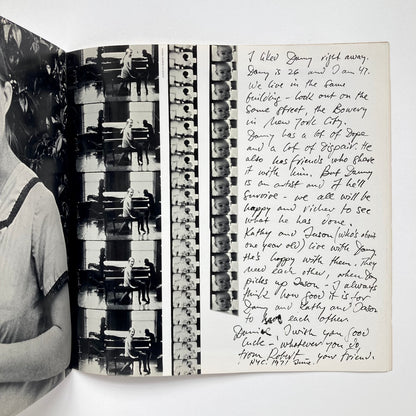 I liked Danny right away.
Danny is 26 and I am 47.
We live in the same
building - look out on the
same street, the Bowery
in New York City.
Danny has a lot of Dope
and a lot of Dispair. He
also has friends who share
it with him. But Danny
is an artist and if he'll
survive - we all will be
happy and richer to see
what he has done.
Kathy and Jason (who's about
one year old) live with Danny
He's happy with them. They
need each other, when Danny
picks up Jason - I always
think how good it is for
Danny and Kathy and Jason
to have each other.
I wish you Good
luck - whatever you do,
from Robert, your friend.
NYC. 1971 June.